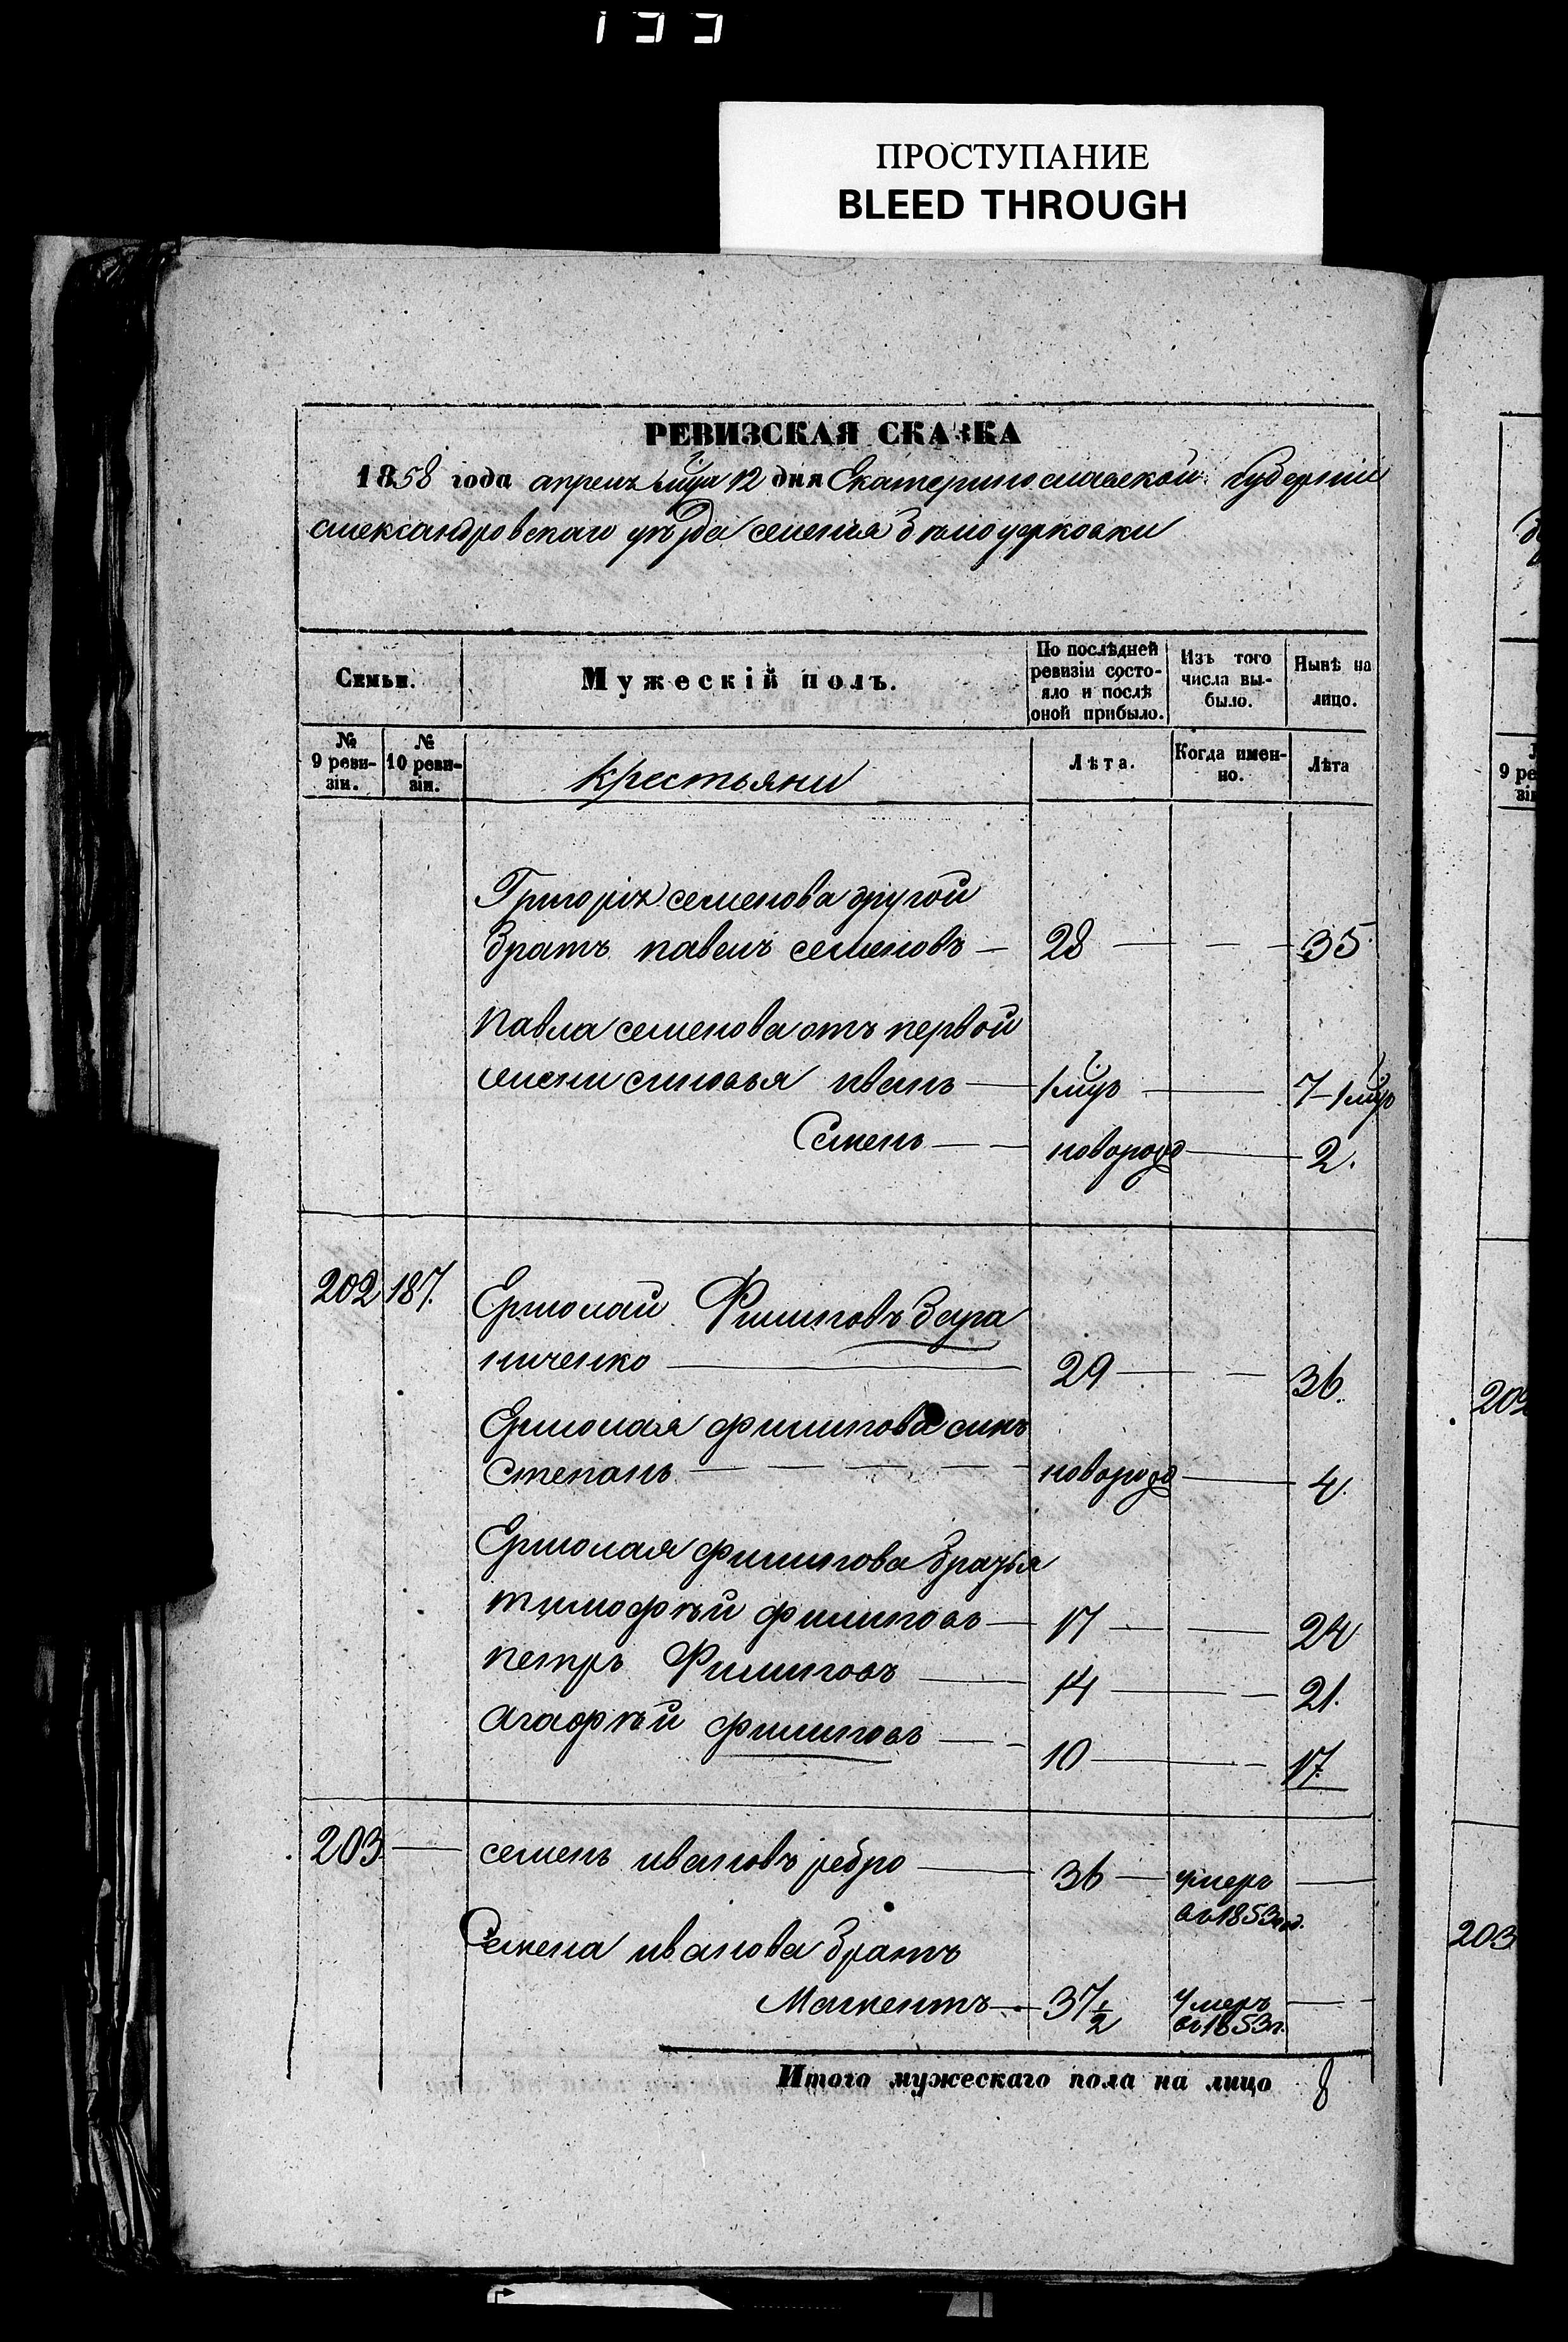 133
ПРОСТУПАНИЕ
BLEED THROUGH
РЕВИЗСКАЯ СКАЗКА
1858 года апреля мца 12 дня Екатеринославской губерніи
александровскаго уѣзда селенія Бѣлоцерковки
Семьи.
Мужескій полъ.
По послѣдней ревизіи состояло и послѣ оной прибыло.
Изъ того числа выбыло.
Нынѣ на лицо.
№ 9 ревизіи.
№ 10 ревизіи.
крестьяни
Лѣта.
Когда именно.
Лѣта
Григорія семенова другой
братъ павелъ семеновъ — 28 — — 35
павла семенова отъ первой
жени синовья иванъ — 1 мцъ — 7-1 мцъ
Семенъ — — новорожд — 2.
202 187. Ермолай Филиповъ
ниченко — 29 — — 36.
Ермолая филипова синъ
Степанъ — — — — новорожд — 4.
Ермолая филипова братья
тимофѣй филиповъ — 17 — — 24
петръ Филиповъ — 14 — — 21.
агафѣй филиповъ — — 10 — — 17.
203 — семенъ ивановъ ребро — 36 — умеръ —
въ 1853 год.
Семена иванова братъ
37 1/2 Умеръ — —
въ 1853 г.
Итого мужескаго пола на лицо 8
202
203